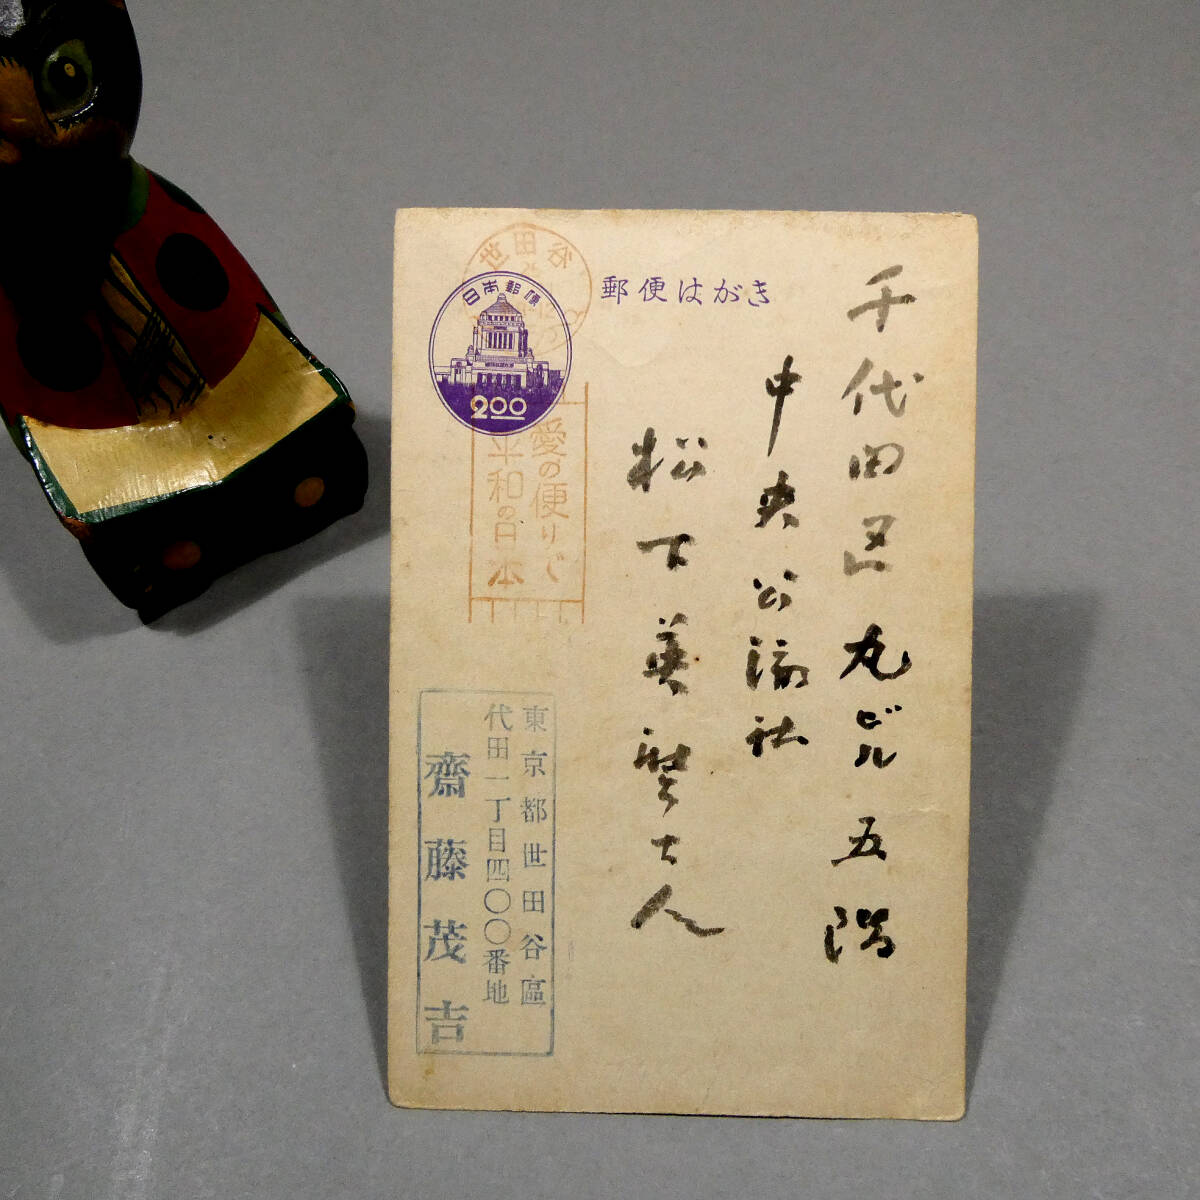 郵便はがき
千代田区丸ビル五階
中央公論社
松下英麿大人
世田谷
日本郵便
200
愛の便りで
平和の日本
東京都世田谷區
代田一丁目四〇〇番地
齋藤茂吉